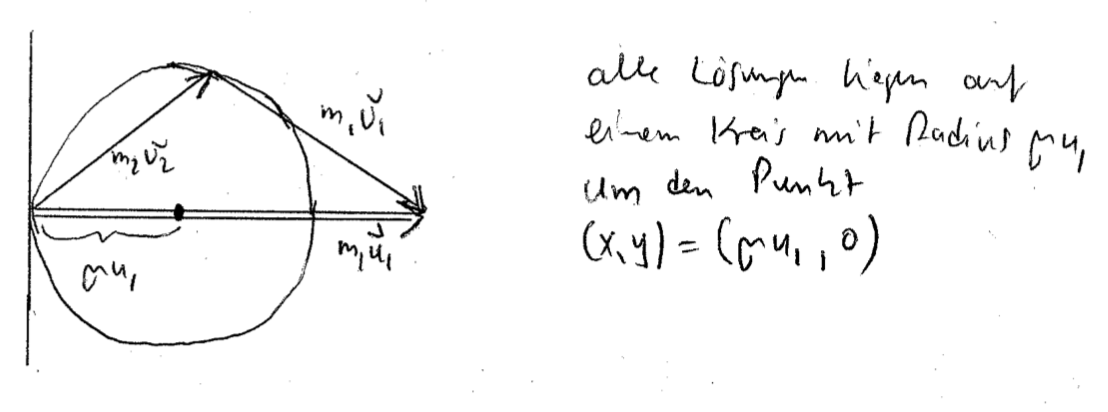 m₁v⃗₁
m₂v⃗₂
m₁u⃗₁
μu₁
alle Lösungen liegen auf
einem Kreis mit Radius μu₁
um den Punkt
(x,y) = (μu₁, 0)